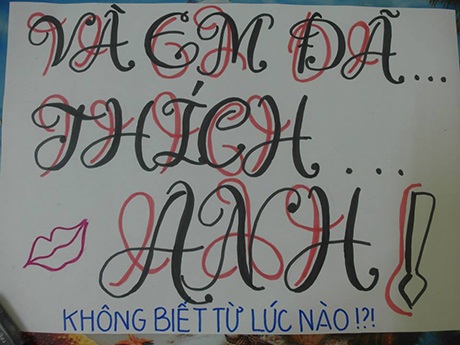 VÀ EM ĐÃ...
THÍCH...
ANH!
KHÔNG BIẾT TỪ LÚC NÀO!?!